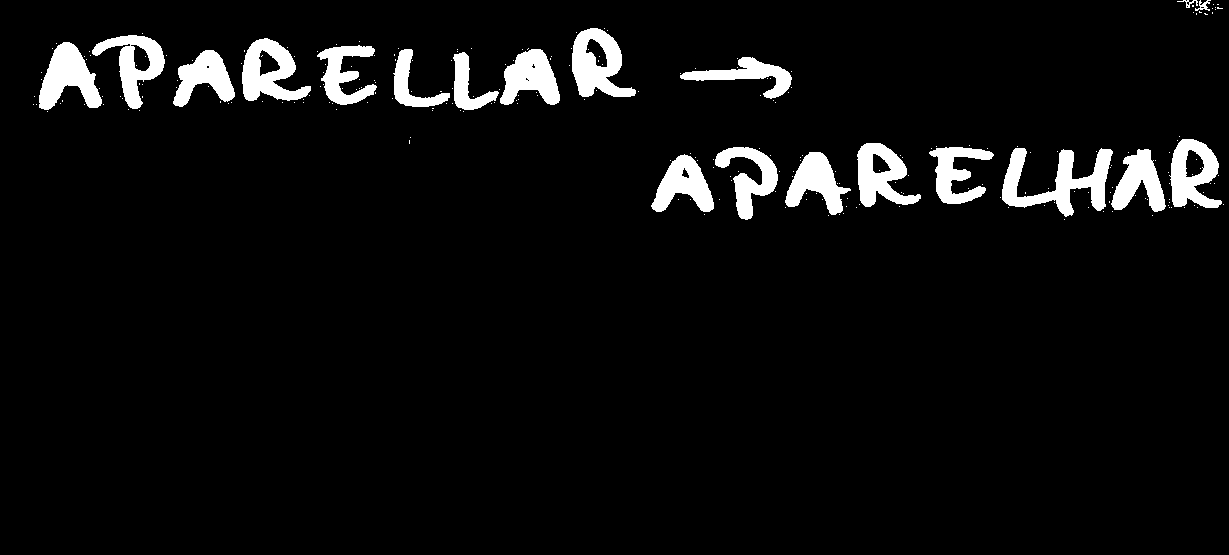 APARELLAR →
APARELHAR